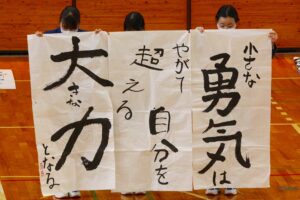 小さな
勇気は
やがて
自分を
超える
大きな
力
となる